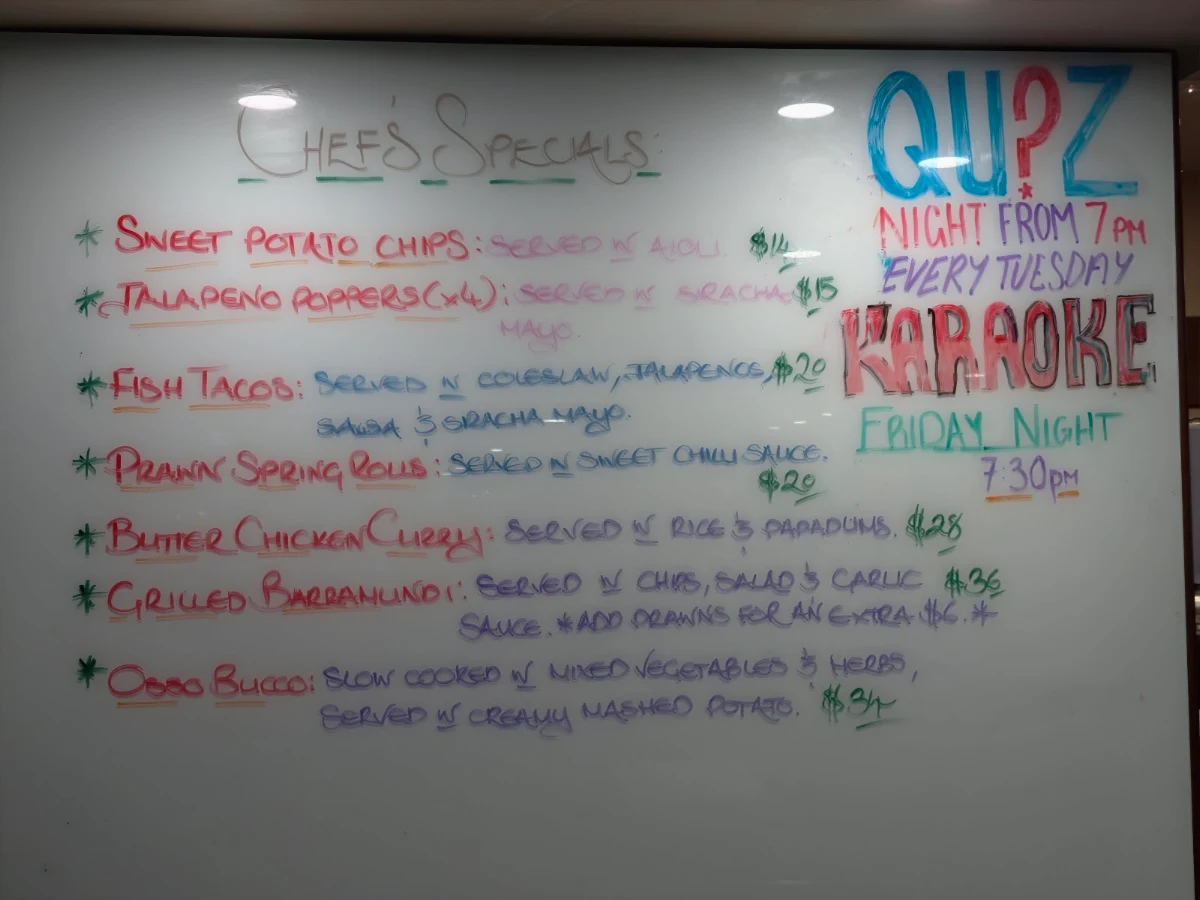 CHEF'S SPECIALS:
* SWEET POTATO CHIPS: SERVED W AIOLI. $14
* JALAPENO POPPERS (x4): SERVED W SIRACHA $15
MAYO.
* FISH TACOS: SERVED W COLESLAW, JALAPENOS, $20
SALSA & SIRACHA MAYO.
* PRAWN SPRING ROLLS: SERVED W SWEET CHILLI SAUCE.
$20
* BUTTER CHICKEN CURRY: SERVED W RICE & PAPADUMS. $28
* GRILLED BARRAMUNDI: SERVED W CHIPS, SALAD & GARLIC $36
SAUCE. *ADD PRAWNS FOR AN EXTRA $6.*
* OSSO BUCCO: SLOW COOKED W MIXED VEGETABLES & HERBS,
SERVED W CREAMY MASHED POTATO. $34
QU?Z
NIGHT FROM 7PM
EVERY TUESDAY
KARAOKE
FRIDAY NIGHT
7:30pm